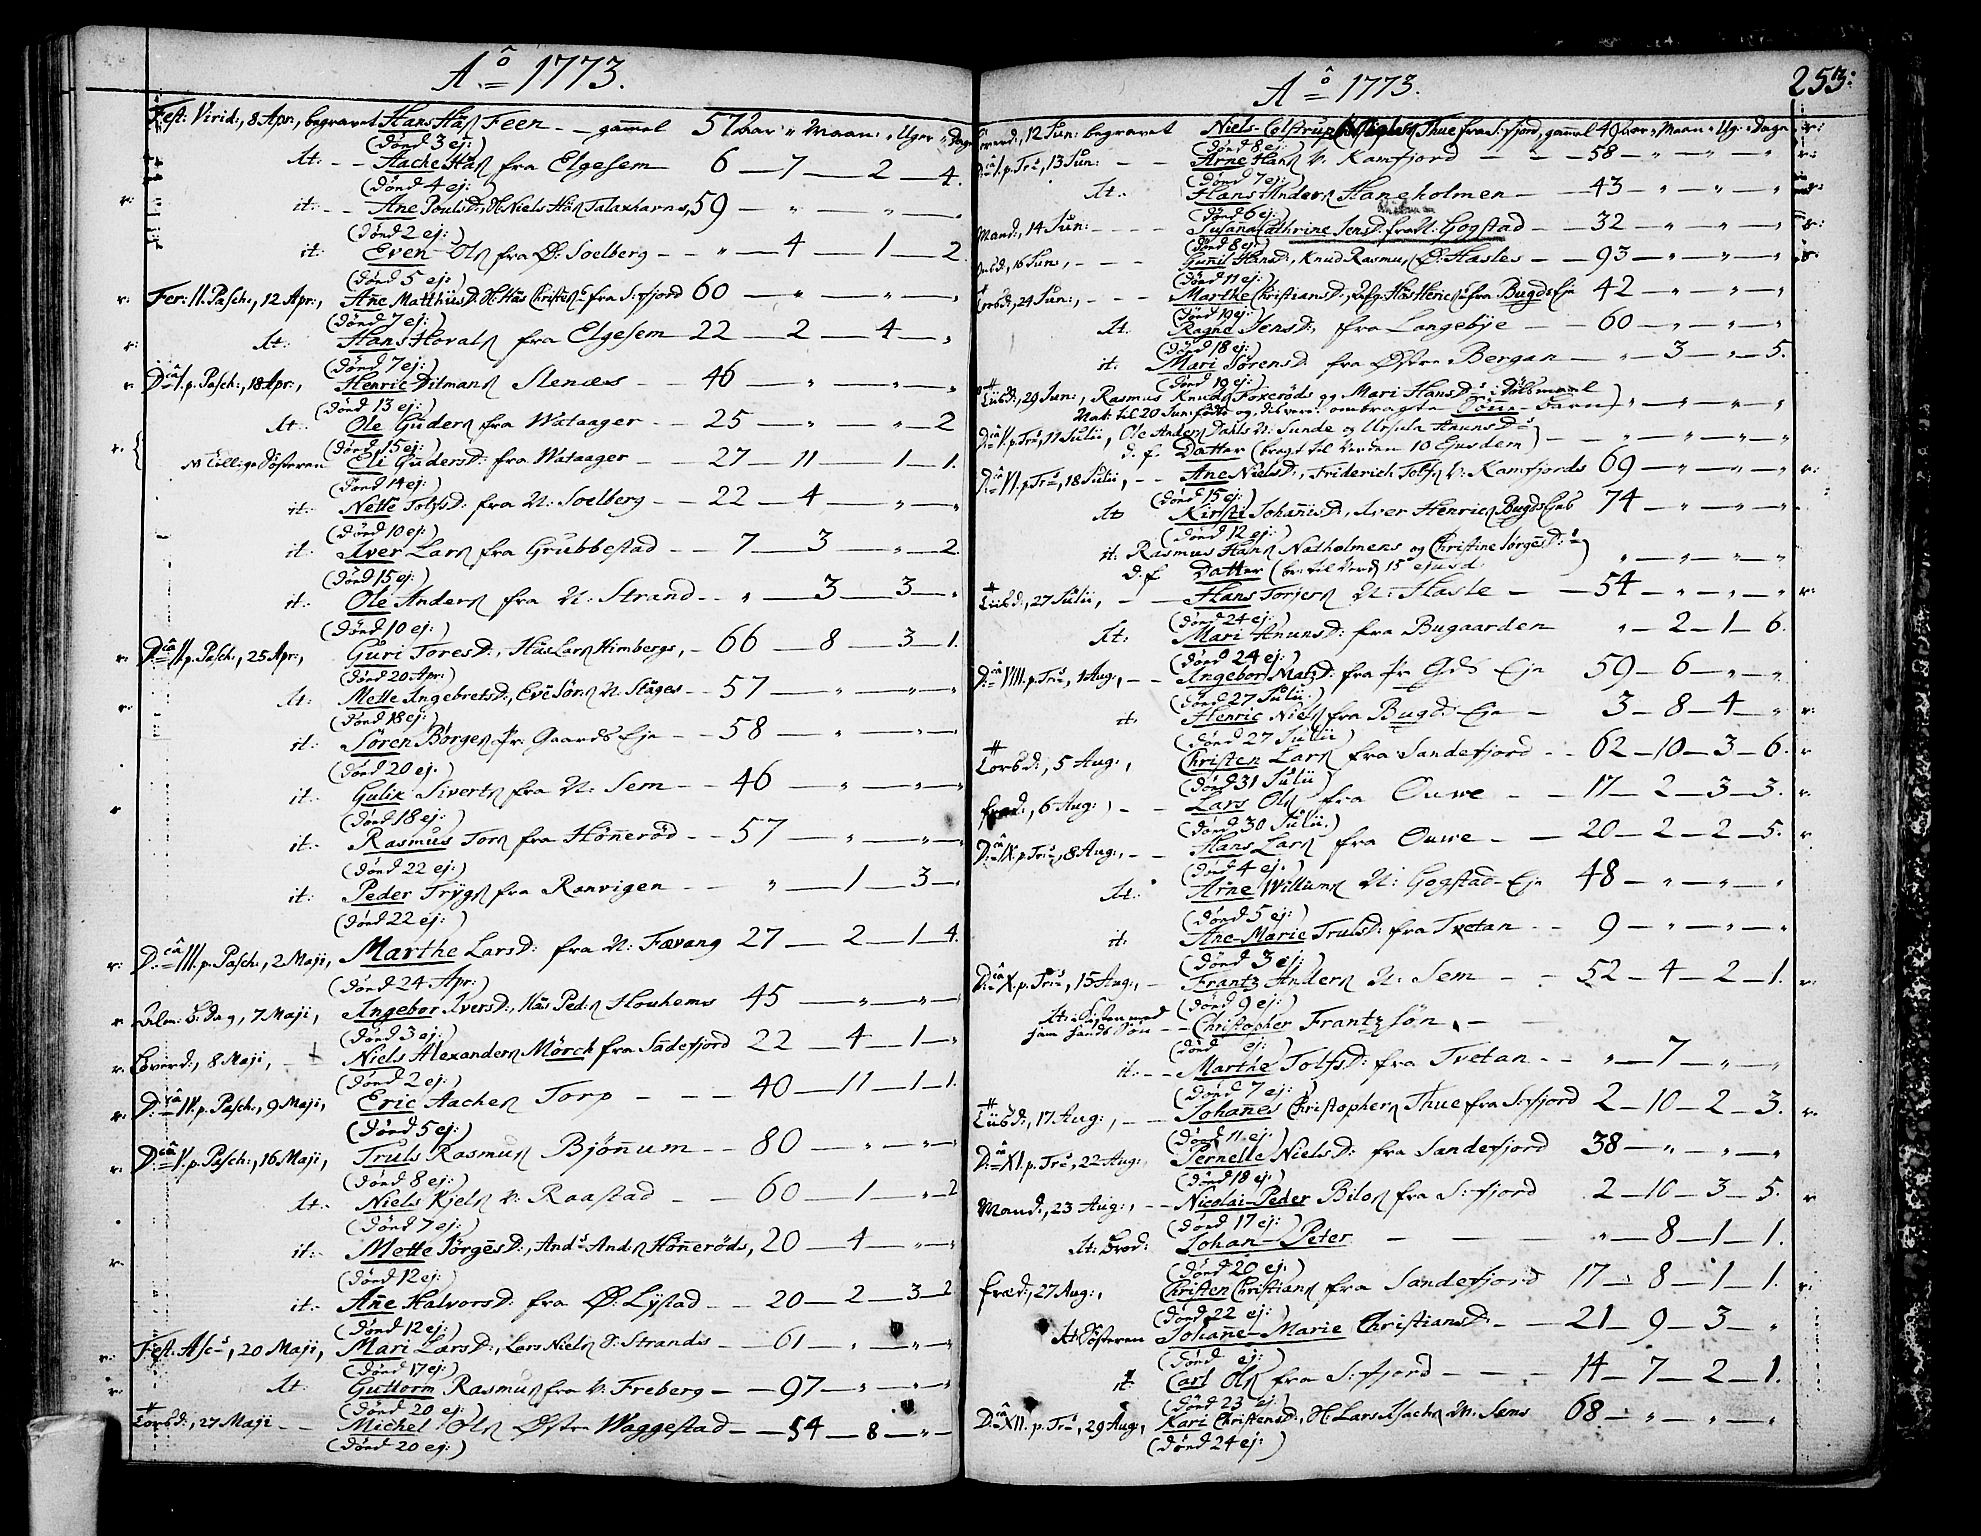 Aº 1773.
Fest: Virid:, 8 Apr:, begravet Hans Hãs Feen - - gam̄el 57 Aar " Maan: " Uger " Dage
(Dönd 3 ej:)
It: - - Aache Hãs fra Elgesem 6 — 7 — 2 — 4.
(Dönd 4 ej:)
it: - - Ane PoulsD:, H: Niels Hãs Talaxhavns, 59 — " — " — "
(Dönd 2 ej:)
it: Even Ols fra Ø: Soelberg - - " — 4 — 1 — 2
(Dönd 5 ej:)
Fer: II. Pasch:, 12 Apr:, Añe MatthiisD: H: Hãs fra S:fjord 60 — " — " — "
(Dönd 7 ej:)
It: Hans Hovals fra Elgesem 22 — 2 — 4 — "
(Dönd 7 ej:)
D:câ I. p. Pasch:, 18 Apr:, Henric Ditmans Stenæs - - 46 — " — " — "
(Dönd 13 ej:)
It: Ole Guders fra Wataager - - 25 — " — " — 2
(Dönd 15 ej:)
Tillige Söfteren Eli GudersD: fra Wataager - - 27 — 11 — 1 — 1.
(Dönd 14 ej:)
it: Nette TolfsD: fra N: Soelberg - - 22 — 4 — " — "
(Dönd 10 ej:)
it: Iver Lars fra Grubbestad - - 7 — 3 — " — 2.
(Dönd 15 ej:)
it: Ole Anders fra N: Strand - - " — 3 — 3 — "
(Dönd 10 ej:)
D:câ II. p. Pasch:, 25 Apr:, Guri ToresD:, Hãs Lars Himbergs, - 66 — 8 — 3 — 1.
(Dönd 20 Apr:)
It: Mette IngebretsD:, Evẽ Sörs N: Stages - - 57 — " — " — "
(Dönd 18 ej:)
it: Sören Börges Pr: Gaards Eje - - 58 — " — " — "
(Dönd 20 ej:)
it: Gulik Siverts fra N: Sem - - 46 — " — " — "
(Dönd 18 ej:)
it: Rasmus Tors fra Hön̄eröd - - 57 — " — " — "
(Dönd 22 ej:)
it: Peder Trygs fra Ranvigen - - " — 1 — 3 — "
(Dönd 22 ej:)
D:câ III. p. Pasch:, 2 Maji, Marthe LarsD: fra N: Fævang 27 — 2 — 1 — 4.
(Dönd 24 Apr:)
Alm: B: Dag, 7 Maji, Ingebor IversD:, Hãs Ped:s Houhems 45 — " — " — "
(Dönd 3 ej:)
Löverd:, 8 Maji, - Niels Alexanders Mörch fra Sãdefjord 22 — 4 — 1 — "
(Dönd 2 ej:)
D:câ IV. p. Pasch:, 9 Maji, Eric Aaches Torp - - - 40 — 11 — 1 — 1.
(Dönd 5 ej:)
D:câ V. p. Pasch:, 16 Maji, Truls Rasmus Bjön̄um - - 80 — " — " — "
(Dönd 8 ej:)
It: Niels Kjels V: Raastad - - 60 — 1 — " — 2
(Dönd 7 ej:)
it: Mette JörgẽsD:, And:s And:s Hön̄eröds, 20 — 4 — " — "
(Dönd 12 ej:)
it: Añe HalvorsD: fra Ø: Lystad - - 20 — 2 — 3 — 2
(Dönd 12 ej:)
Fest: Asc:s, 20 Maji, Mari LarsD:, Lars Niels Ø: Strands - - 61 — " — " — "
(Dönd 17 ej:)
It: Guttorm Rasmus fra V: Freberg - - 97 — " — " — "
(Dönd 20 ej:)
Torsd:, 27 Maji - - Michel Ols Østre Waggestad - - 54 — 8 — " — "
(Dönd 20 ej:)
Aº 1773.
253:
Löverd:, 12 Jun: begravet Niels Colstrup Thue fra S:fjord, gam̄el 40 Aar " Maan " Ug: " Dage
(Dönd 8 ej:)
D:câ I. p. Tr:, 13 Jun: - - Arne Hans V: Kamfjord - - - 58 — " — " — "
(Dönd 7 ej:)
It: Hans Anders Haneholmen - 43 — " — " — "
(Dönd 6 ej:)
Mand:, 14 Jun: - - - Susana Cathrine JensD: fra N: Gogstad - - 32 — " — " — "
(Dönd 8 ej:)
Onsd:, 16 Jun:, - - - Gunil HansD:, Knud Rasmus Ø: Hasles - - 93 — " — " — "
(Dönd 11 ej:)
Torsd:, 24 Jun:, - - - Marthe ChristiansD:, Hãs Henrics fra Bugds Eje 42 — " — " — "
(Dönd 19 ej:)
It: Ragne JensD: fra Langebye - - 60 — " — " — "
(Dönd 18 ej:)
it: Mari SörensD: fra Østre Bergan - " — 3 — " — 5.
(Dönd 19 ej:)
Tiisd:, 29 Jun:, Rasmus Knuds Foxeröds og Mari HansD:s
Nat: til 20 Jun: födte og ombragte Barn) " — " — " — "
D:câ V. p. Tr:, 11 Julii, Ole Anders Dahls N: Sunde og Ursula AnunsD:s
d. f. Datter (bragt til Verden 10 Ejusdem) - - " — " — " — "
D:câ VI. p. Tr:, 18 Julii, - - Ane NielsD:, Friderich Tolfs V: Kamfjords 69 — " — " — "
(Dönd 15 ej:)
It: Kirsti JohañisD:, Iver Henrics Bugds Ejes 74 — " — " — "
(Dönd 12 ej:)
it: Rasmus Hãns Natholmens og Christine JörgẽsD:s
d. f. Datter (br: til Verd: 15 ejusd: ) " — " — " — "
Tiisd:, 27 Julii, - - Hans Torjers N: Hasle - - 54 — " — " — "
(Dönd 24 ej:)
It: Mari AnunsD: fra Bugaarden " — 2 — 1 — 6.
(Dönd 24 ej:)
D:câ VIII. p. Tr:, 1 Aug:, - - Ingebor MatzD: fra Pr: Gds Eje 59 — 6 — " — "
(Dönd 27 Julii)
it: Henric Niels fra Bugds Eje - 3 — 8 — 4 — "
(Dönd 27 Julii)
Torsd:, 5 Aug:, Christen Lars fra Sandefjord - - 62 — 10 — 3 — 6.
(Dönd 31 Julii)
Fred:, 6 Aug:, - - Lars Ols fra Ouwe - - 17 — 2 — 3 — 3.
(Dönd 30 Julii.)
D:câ IX. p. Tr:, 8 Aug:, - - Hans Lars fra Ouwe - - 20 — 2 — 2 — 5.
(Dönd 4 ej:)
It: Arne Willums N: Gogstad-Eje 48 — " — " — "
(Dönd 5 ej:)
it: Ane-Marie TrulsD: fra Tvetan - - 9 — " — " — "
(Dönd 3 ej:)
D:câ X. p. Tr:, 15 Aug:, - Frantz Anders N: Sem - - 52 — 4 — 2 — 1.
(Dönd 9 ej:)
It: Kisten med
sam̄e hands Sön - - Christopher Frantzsön - -
(Dönd ej:)
it: - - Marthe TolfsD: fra Tvetan - - " — 7 — " — "
(Dönd 7 ej:)
Tiisd:, 17 Aug:, - - Johañes Christophers Thue fra S:fjord 2 — 10 — 2 — 3.
(Dönd 11 ej:)
D:câ XI. p. Tr:, 22 Aug: Pernelle NielsD: fra Sandefjord 38 — " — " — "
(Dönd 18 ej:)
Mand:, 23 Aug:, - - Nicolai-Peder Bilos fra S:fjord 2 — 10 — 3 — 5.
(Dönd 17 ej:)
It: Brod: Johan-Peter - - - " — 8 — 1 — 1.
(Dönd 20 ej:)
Fred:, 27 Aug:, Christen Christians fra Sandefjord 17 — 8 — 1 — 1.
(Dönd 22 ej:)
It: Söfteren Johañe-Marie ChristiansD: - - 21 — 9 — 3 — "
(Dönd ej:)
it: Carl Ols fra S:fjord - - - 14 — 7 — 2 — 1.
(Dönd 23 ej:)
D:câ XII. p. Tr:, 29 Aug:, Kari ChristensD:, H: Lars Isachs N: Sems 68 — " — " — "
(Dönd 24 ej:)